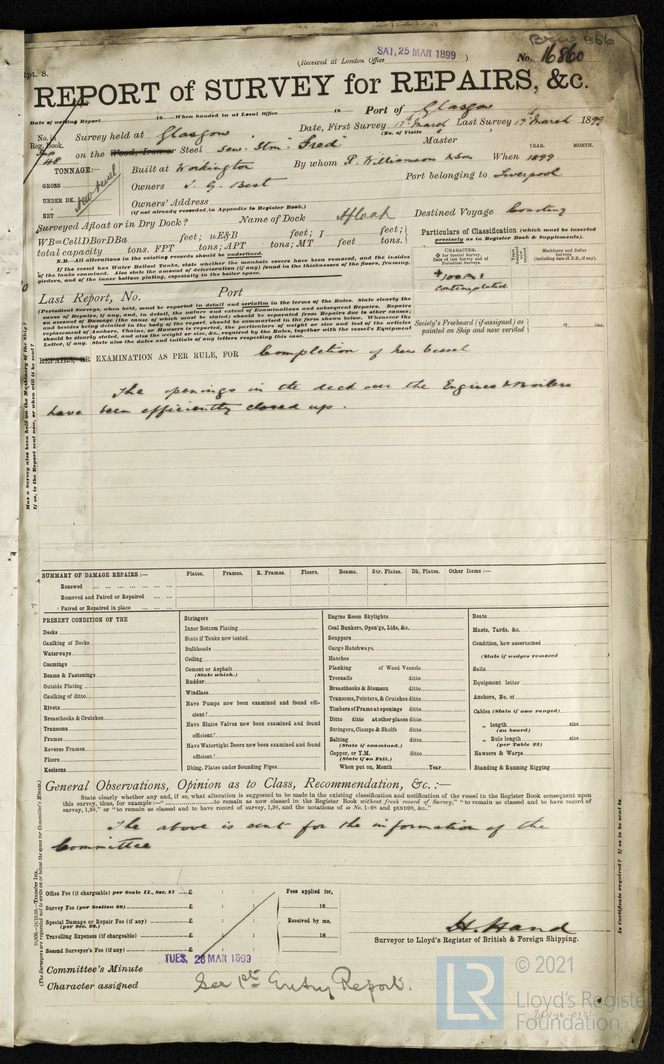 Rpt. 8.
(Received at London Office
SAT, 25 MAR 1899
No. 16860
REPORT of SURVEY for REPAIRS, &c.
Date of writing Report
18
When handed in at Local Office
18
Port of Glasgow
No. in Reg. Book.
Survey held at Glasgow
Date, First Survey 17th March Last Survey 17th March 1899
(No. of Visits
48
on the Wood, Iron or Steel Scw. Stm. "Fred"
Master
TONNAGE:—
Built at Workington
By whom R. Williamson & Son
When 1899
YEAR. MONTH.
GROSS
UNDER DK.
NET
New Vessel
Owners J. G. Best
Port belonging to Liverpool
Owners' Address
(if not already recorded in Appendix to Register Book.)
Surveyed Afloat or in Dry Dock?
Name of Dock Afloat
Destined Voyage Coasting
WB=CellDBorDBa feet; uE&B feet; f feet;
total capacity tons. FPT tons; APT tons; MT feet tons.
N.B.—All alterations in the existing records should be underlined.
If the vessel has Water Ballast Tanks, state whether the manhole covers have been removed, and the insides
of the tanks examined. Also state the amount of deterioration (if any) found in the thicknesses of the floors, framing,
girders, and of the inner bottom plating, especially in the boiler space.
Particulars of Classification (which must be inserted
precisely as in Register Book & Supplements).
CHARACTER.
+100A1
contemplated
Last Report, No. Port
(Periodical Surveys, when held, must be reported in detail and seriatim in the terms of the Rules. State clearly the
cause of Repairs, if any, and, in detail, the nature and extent of Examinations and subsequent Repairs. Repairs
on account of Damage (the cause of which must be stated) should be separated from Repairs due to other causes;
and besides being detailed in the body of the report, should be summarised in the form shown below. Whenever the
replacement of Anchors, Chains, or Hawsers is reported, the particulars of weight or size and test of the articles
should be clearly stated, and also the weight or size, &c., required by the Rules, together with the vessel's Equipment
Letter, if any. State also the dates and initials of any letters respecting this case.
Society's Freeboard (if assigned) as
painted on Ship and now verified
ft. ins.
REPAIRS, OR EXAMINATION AS PER RULE, FOR Completion of New Vessel
The openings in the deck over the Engines & Boilers
have been efficiently closed up.
SUMMARY OF DAMAGE REPAIRS:—
Plates. Frames. R. Frames. Floors. Beams. Str. Plates. Dk. Plates. Other Items:—
Renewed
Removed and Faired or Repaired
Faired or Repaired in place
PRESENT CONDITION OF THE
Decks
Caulking of Decks
Waterways
Coamings
Beams & Fastenings
Outside Plating
Caulking of ditto
Rivets
Breasthooks & Crutches
Transoms
Frames
Reverse Frames
Floors
Keelsons
Stringers
Inner Bottom Plating
State if Tanks now tested
Bulkheads
Ceiling
Cement or Asphalt
(State which.)
Rudder
Windlass
Have Pumps now been examined and found effi-
cient?
Have Sluice Valves now been examined and found
efficient?
Have Watertight Doors now been examined and found
efficient?
Dbling. Plates under Sounding Pipes
Engine Room Skylights
Coal Bunkers, Open'gs, Lids, &c.
Scuppers
Cargo Hatchways
Hatches
Planking of Wood Vessels
Treenails ditto
Breasthooks & Stemson ditto
Transoms, Pointers, & Crutches ditto
Timbers of Frame at openings ditto
Ditto ditto at other places ditto
Stringers, Clamps & Shelfs ditto
Salting ditto
(State if examined.)
Copper, or Y.M. ditto
(State if on Felt.)
When put on, Month Year
Boats
Masts, Yards, &c.
Condition, how ascertained
(State if wedges removed
Sails
Equipment letter
Anchors, No. of
Cables (State if now ranged)
„ length size
(on board)
„ Rule length size
(per Table 22)
Hawsers & Warps
Standing & Running Rigging
General Observations, Opinion as to Class, Recommendation, &c.:—
State clearly whether any, and if so, what alteration is suggested to be made in the existing classification and notification of the vessel in the Register Book consequent upon
this survey, thus, for example:—" to remain as now classed in the Register Book without fresh record of Survey," "to remain as classed and to have record of
survey, 1,98," or "to remain as classed and to have record of survey, 1,98, and the notations of
The above is sent for the information of the
Committee
Office Fee (if chargeable) per Scale II., Sec. 27 £
Survey Fee (per Section 28) £
Special Damage or Repair Fee (if any) £
(per Sec. 28.)
Travelling Expenses (if chargeable) £
Second Surveyor's Fee (if any) £
Fees applied for,
18
Received by me,
18
H. Hand
Surveyor to Lloyd's Register of British & Foreign Shipping.
TUES. 28 MAR 1899
Committee's Minute
Character assigned See 1st Entry Report.
LR
© 2021
Lloyd's Register
Foundation